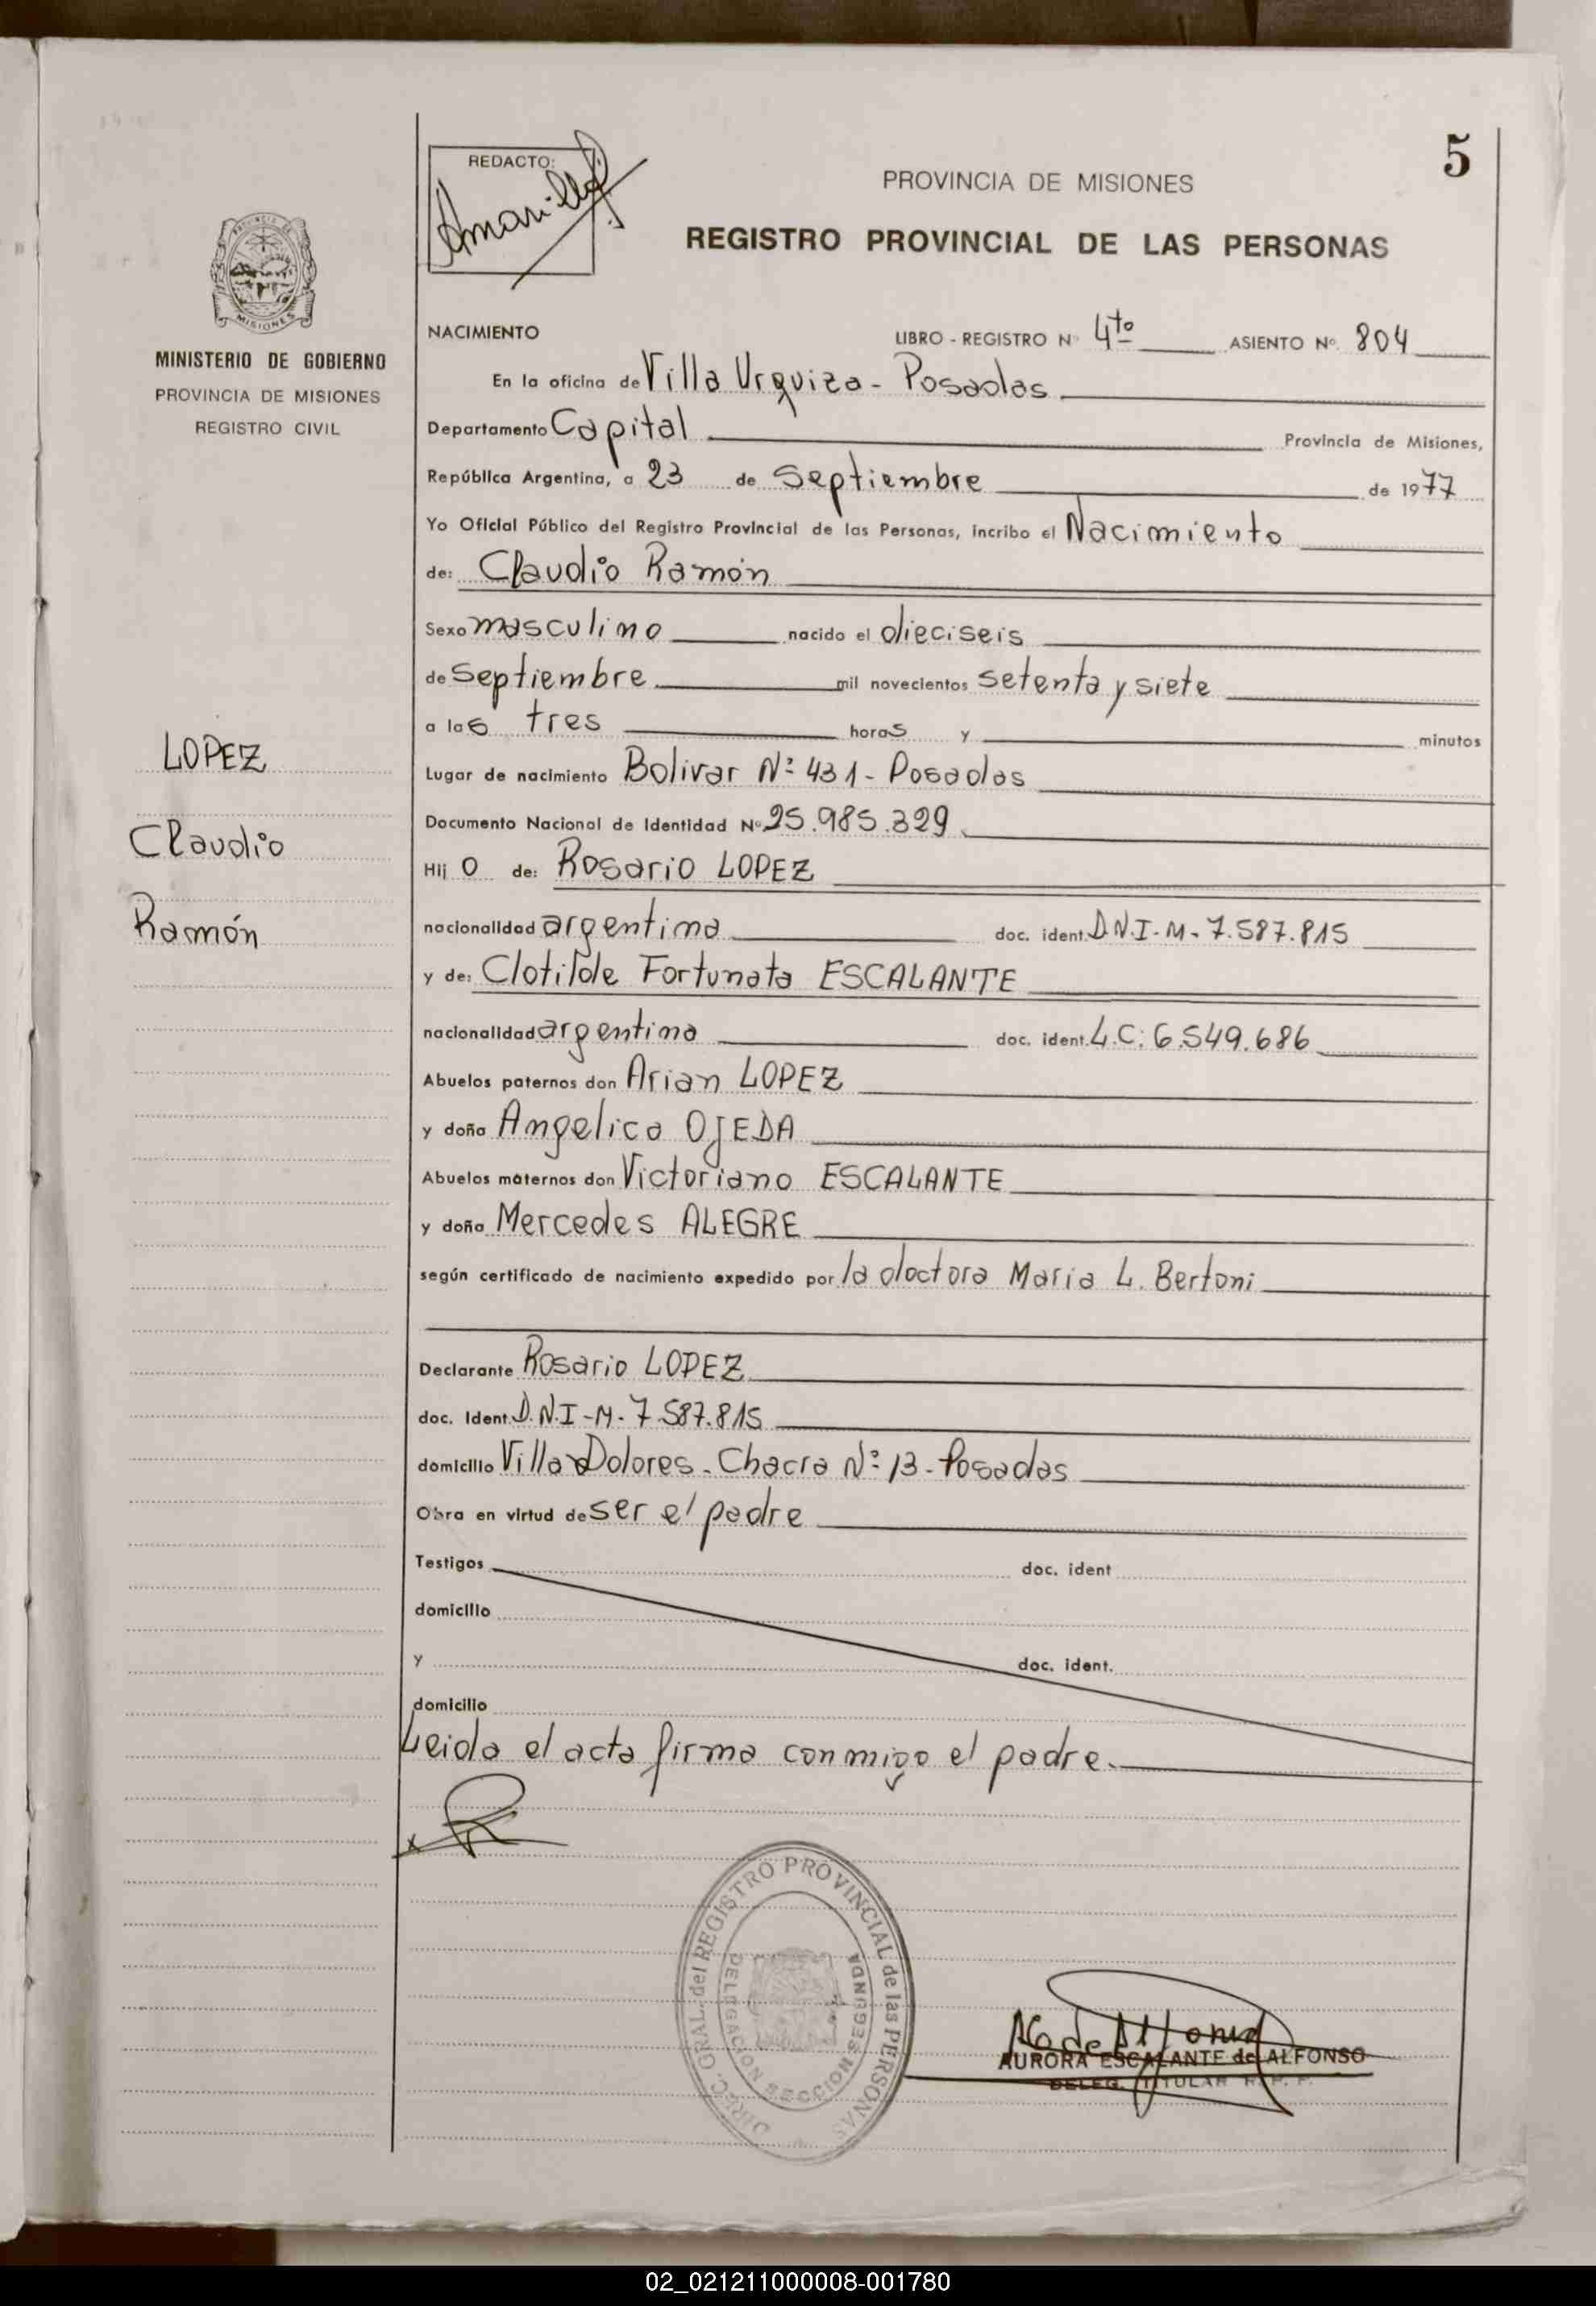 5
REDACTO:
Amarilla
PROVINCIA DE MISIONES
REGISTRO PROVINCIAL DE LAS PERSONAS
MISIONES
MINISTERIO DE GOBIERNO
PROVINCIA DE MISIONES
REGISTRO CIVIL
LOPEZ
Claudio
Ramón
NACIMIENTO LIBRO - REGISTRO Nº 4to ASIENTO Nº 804
En la oficina de Villa Urquiza - Posadas
Departamento Capital Provincia de Misiones,
República Argentina, a 23 de Septiembre de 1977
Yo Oficial Público del Registro Provincial de las Personas, incribo el Nacimiento
de: Claudio Ramón
Sexo masculino nacido el dieciseis
de Septiembre mil novecientos setenta y siete
a las tres horas y minutos
Lugar de nacimiento Bolivar Nº 431 - Posadas
Documento Nacional de Identidad Nº 25.985.329
Hij o de: Rosario LOPEZ
nacionalidad argentina doc. ident. D.N.I-M-7.587.815
y de: Clotilde Fortunata ESCALANTE
nacionalidad argentina doc. ident. L.C: 6.549.686
Abuelos paternos don Arian LOPEZ
y doña Angelica OJEDA
Abuelos maternos don Victoriano ESCALANTE
y doña Mercedes ALEGRE
según certificado de nacimiento expedido por la doctora Maria L. Bertoni
Declarante Rosario LOPEZ
doc. Ident. D.N.I-M-7.587.815
domicilio Villa Dolores - Chacra Nº 13 - Posadas
Obra en virtud de ser el padre
Testigos doc. ident
domicilio
y doc. ident.
domicilio
Leida el acta firma conmigo el padre.
x
DIREC. GRAL. del REGISTRO PROVINCIAL de las PERSONAS
DELEGACION SECCION SEGUNDA
AURORA ESCALANTE de ALFONSO
DELEG. TITULAR R. P. P.
02_021211000008-001780